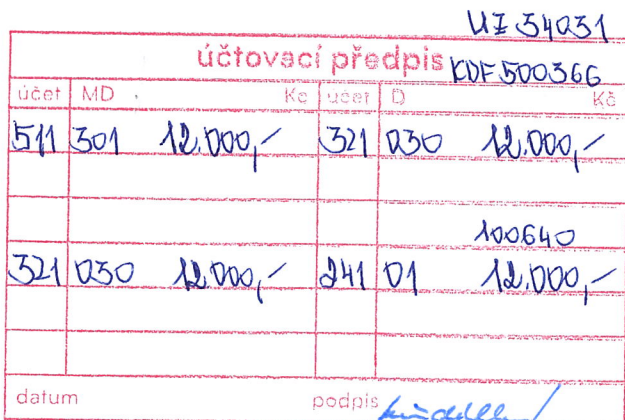 UZ 34031
účtovací předpis KDF 500366
účet MD Kč účet D Kč
511 301 12.000,- 321 030 12.000,-
100640
321 030 12.000,- 241 01 12.000,-
datum podpis